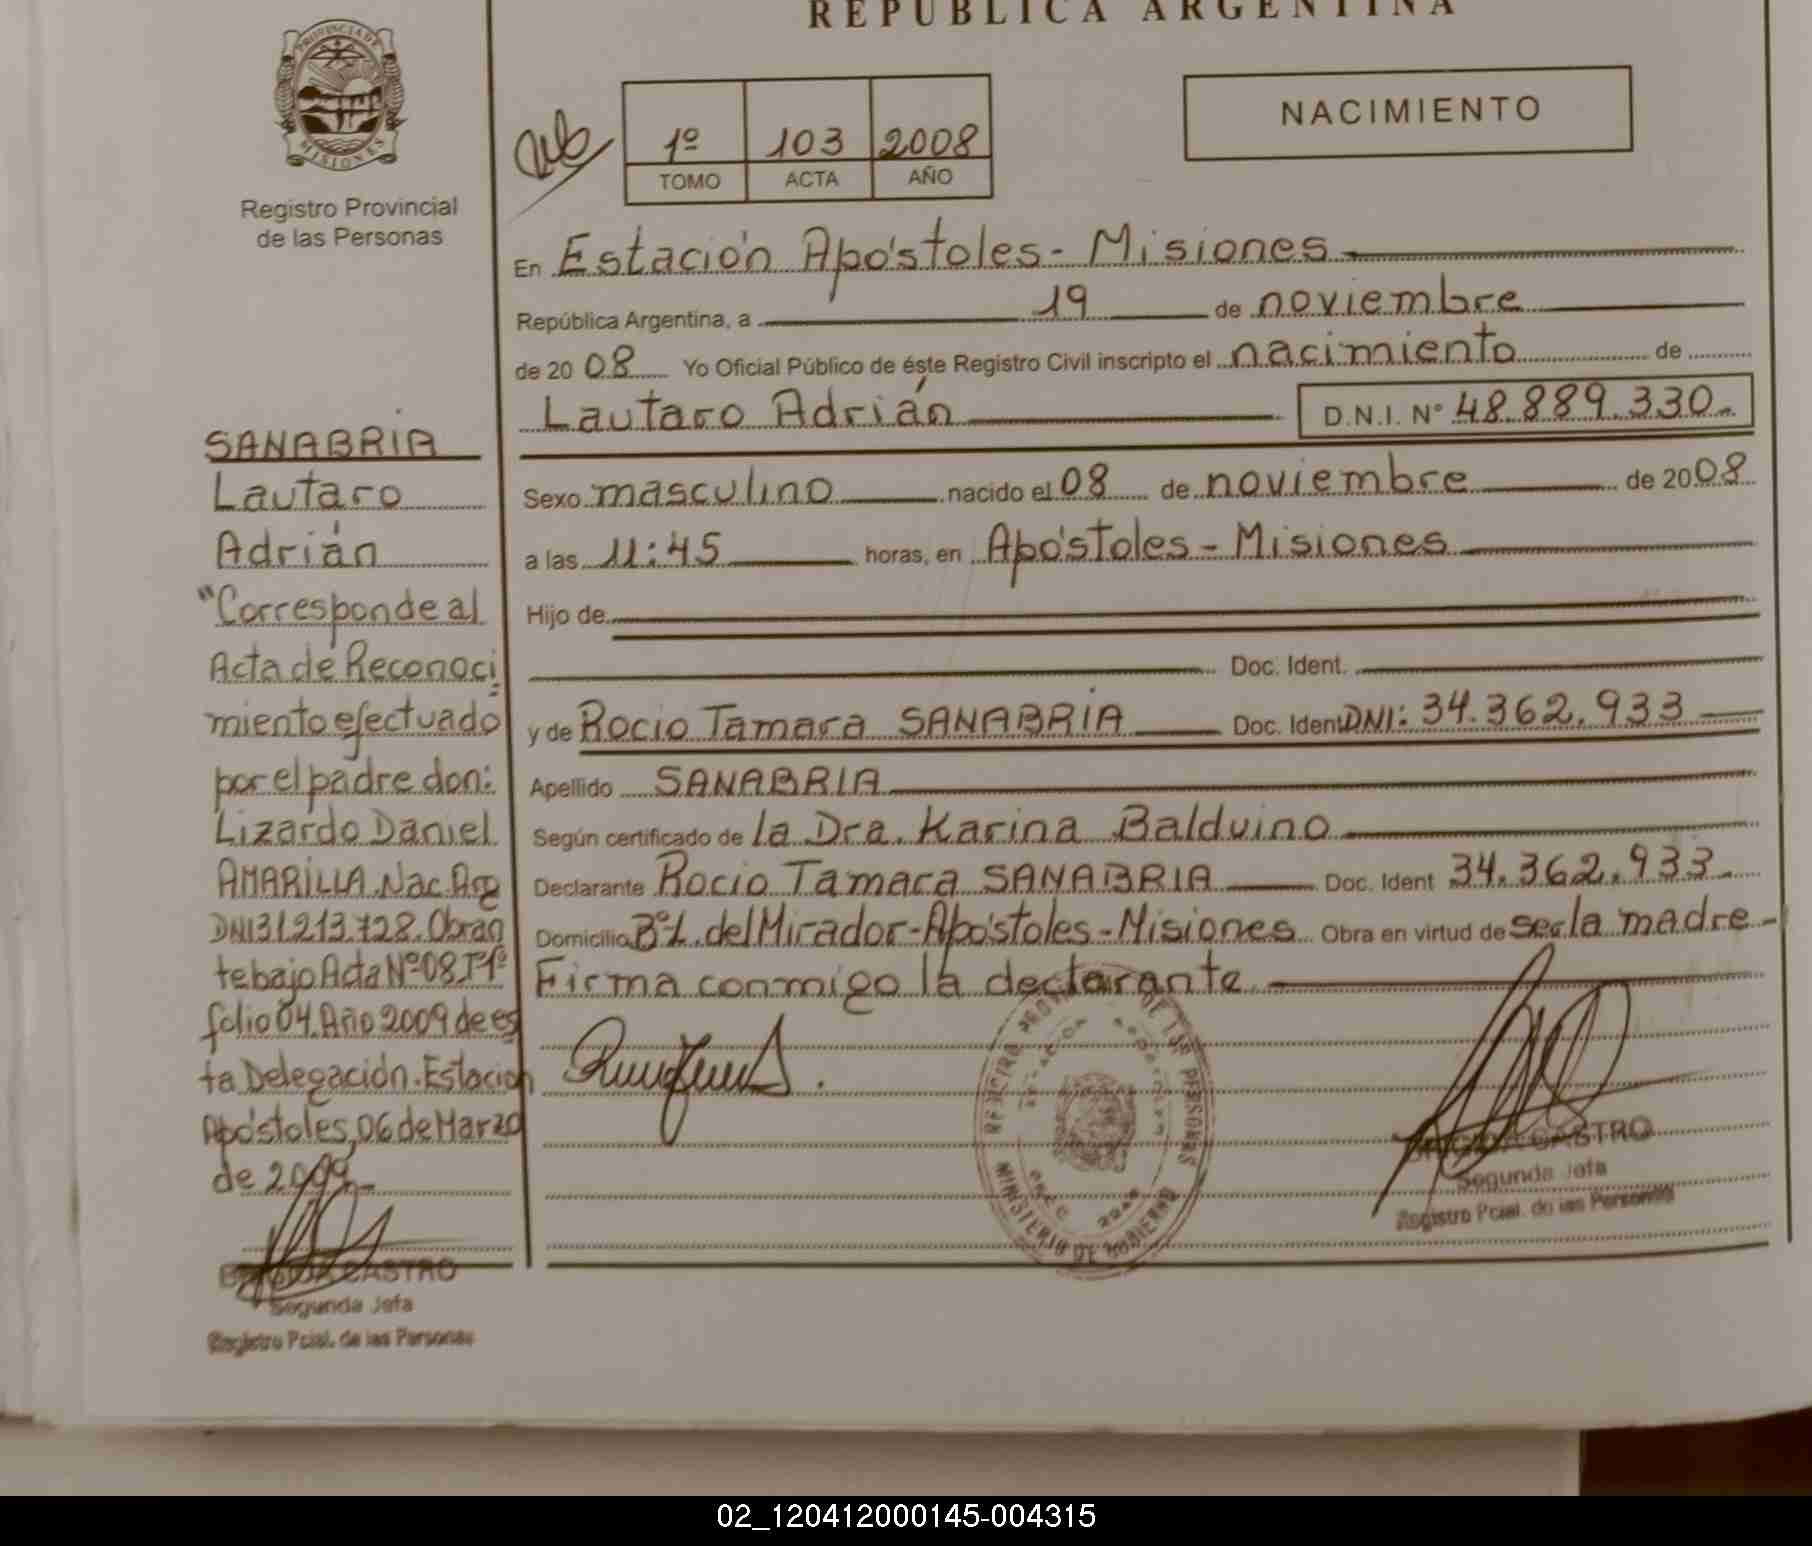 REPUBLICA ARGENTINA
PROVINCIA DE MISIONES
Registro Provincial
de las Personas
1º 103 2008
TOMO ACTA AÑO
NACIMIENTO
En Estación Apóstoles - Misiones
República Argentina, a 19 de noviembre
de 2008 Yo Oficial Público de éste Registro Civil inscripto el nacimiento de
Lautaro Adrián D.N.I. Nº 48.889.330.-
Sexo masculino nacido el 08 de noviembre de 2008
a las 11:45 horas, en Apóstoles - Misiones
Hijo de
Doc. Ident.
y de Rocio Tamara SANABRIA Doc. Ident DNI: 34.362.933
Apellido SANABRIA
Según certificado de la Dra. Karina Balduino
Declarante Rocio Tamara SANABRIA Doc. Ident 34.362.933.
Domicilio Bº L. del Mirador - Apóstoles - Misiones Obra en virtud de ser la madre -
Firma conmigo la declarante
SANABRIA
Lautaro
Adrián
"Corresponde al
Acta de Reconoci
miento efectuado
por el padre don:
Lizardo Daniel
AMARILLA. Nac. Arg
DNI 31.213.728. Obran
te bajo Acta Nº 08. Tº 1º
folio 04. Año 2009 de es
ta Delegación. Estación
Apóstoles, 06 de Marzo
de 2009.-
CASTRO
Segunda Jefa
Registro Pcial. de las Personas
REGISTRO DE LAS PERSONAS
MINISTERIO DE GOBIERNO
CASTRO
Segunda Jefa
Registro Pcial. de las Personas
02_120412000145-004315